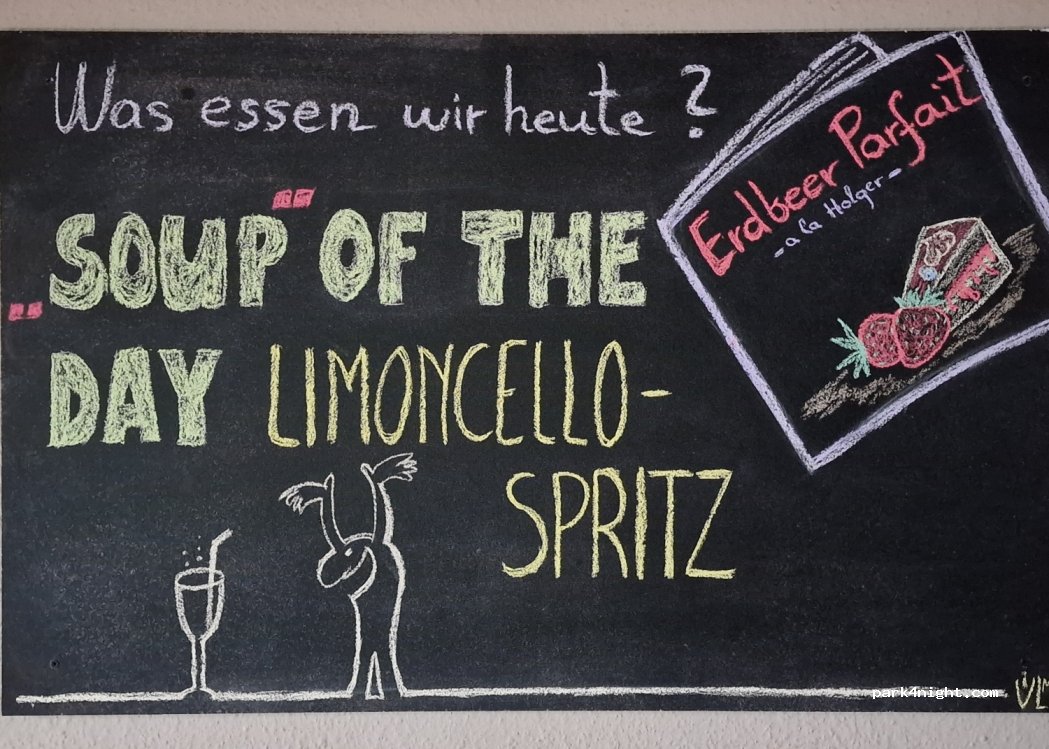 Was essen wir heute ?
"SOUP" OF THE
DAY LIMONCELLO-
SPRITZ
Erdbeer Parfait
- a la Holger -
park4night.com